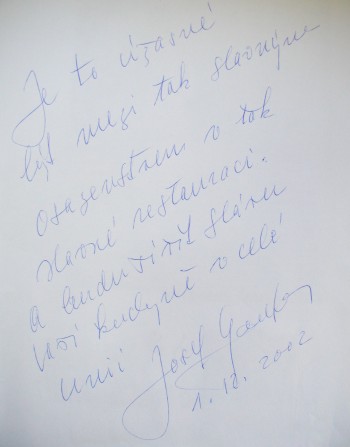 Je to úžasné
být mezi tak slavným
osazenstvem v tak
slavné restauraci.
a budu šířit slávu
vaší kuchyně v celé
unii Josef
1. 10. 2002